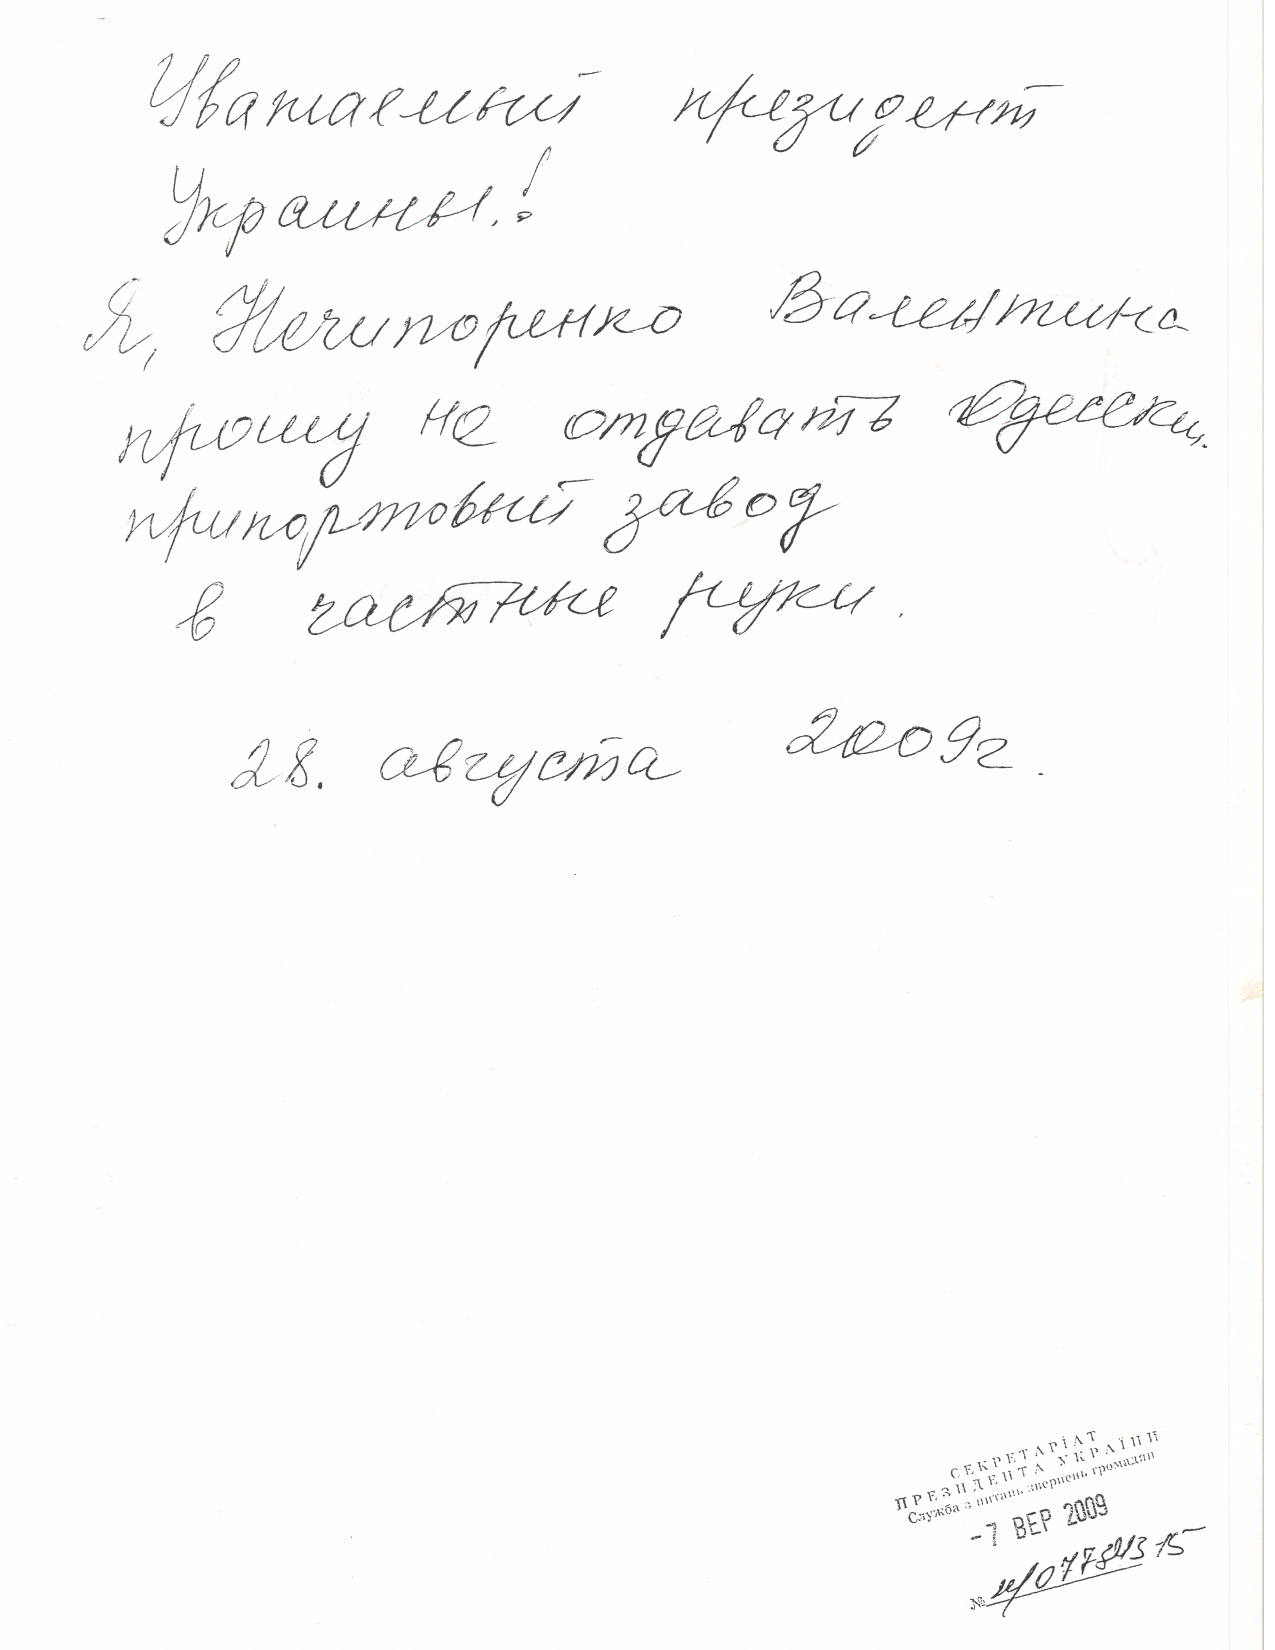 Уважаемый президент
Украины.!
Я, Нечипоренко Валентина
прошу не отдавать Одесски.
припортовый завод
в частные руки.
28. августа 2009г.
СЕКРЕТАРІАТ
ПРЕЗИДЕНТА УКРАЇНИ
Служба з питань звернень громадян
-7 ВЕР 2009
№